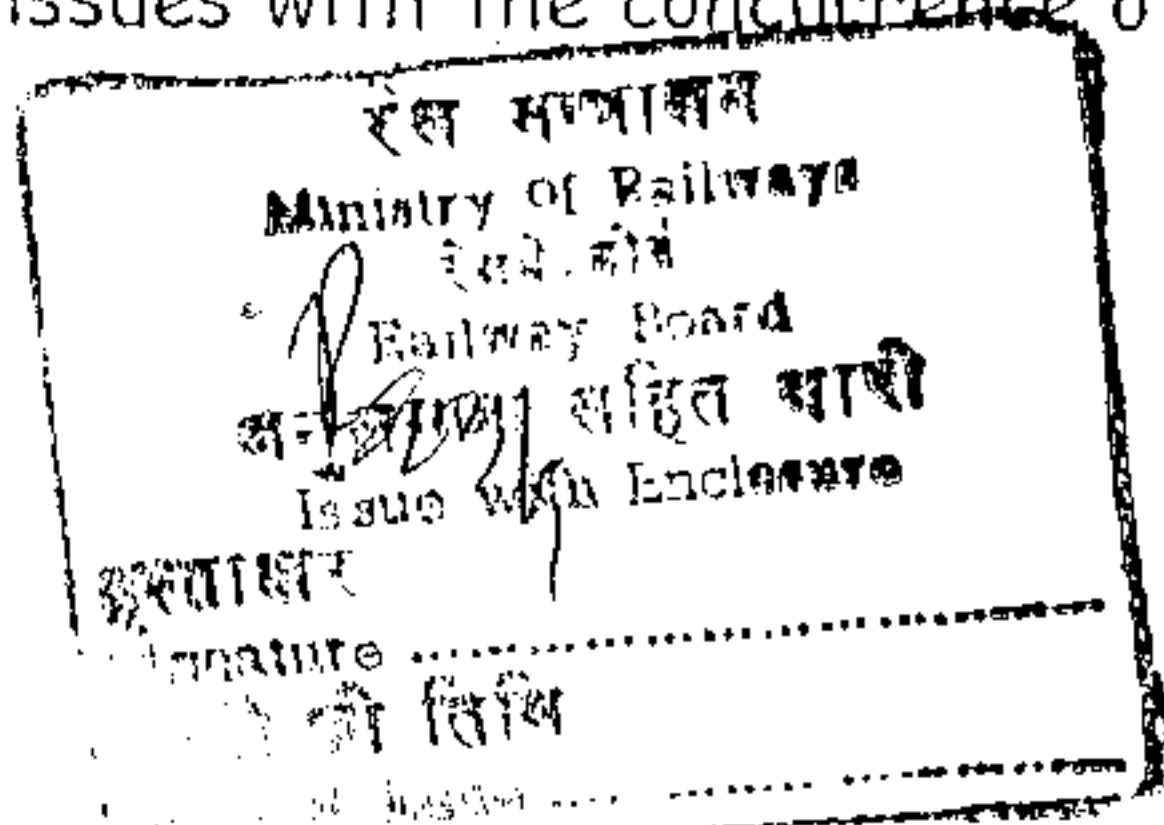 issues with the concurrence o
रेल मन्त्रालय
Ministry of Railways
रेलवे बोर्ड
Railway Board
सहित जारी
Issue with Enclosure
हस्ताक्षर
Signature ..............................
की तिथि
of Issue .... ........ ..............